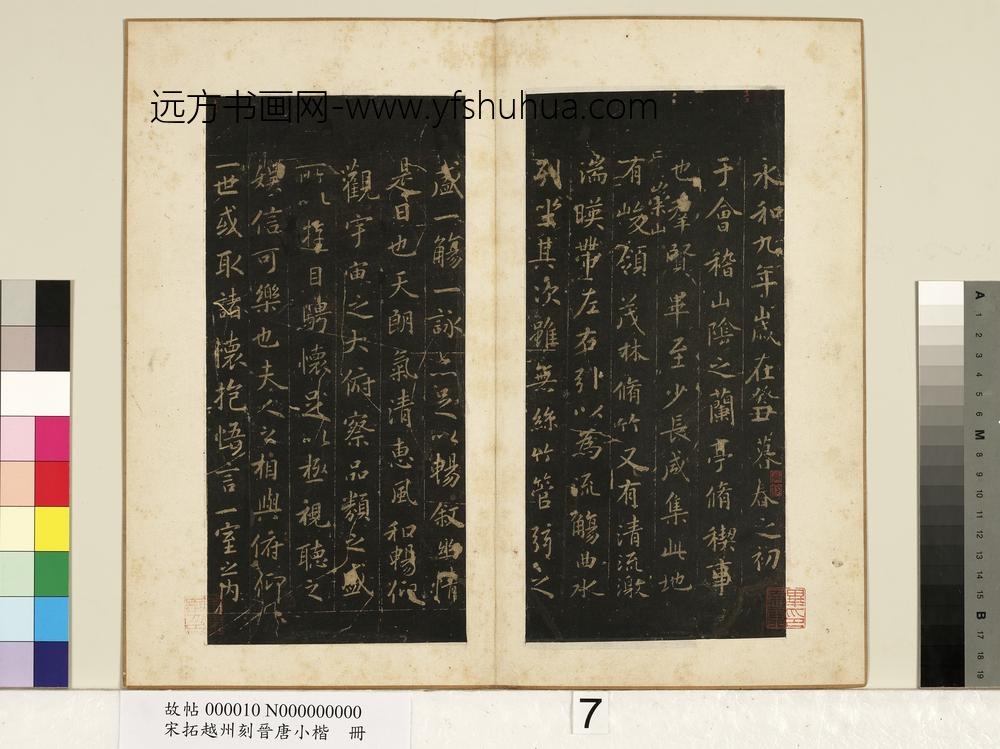 远方书画网-www.yfshuhua.com
永和九年歲在癸丑暮春之初
于會稽山陰之蘭亭脩稧事
也羣賢畢至少長咸集此地
有崇山峻領茂林脩竹又有清流激
湍暎帶左右引以為流觴曲水
列坐其次雖無絲竹管弦之
盛一觴一詠亦足以暢敘幽情
是日也天朗氣清惠風和暢仰
觀宇宙之大俯察品類之盛
所以遊目騁懷足以極視聽之
娛信可樂也夫人之相與俯仰
一世或取諸懷抱悟言一室之內
故帖 000010 N000000000
宋拓越州刻晉唐小楷 冊
7
A 1 2 3 4 5 6 M 8 9 10 11 12 13 14 15 B 17 18 19